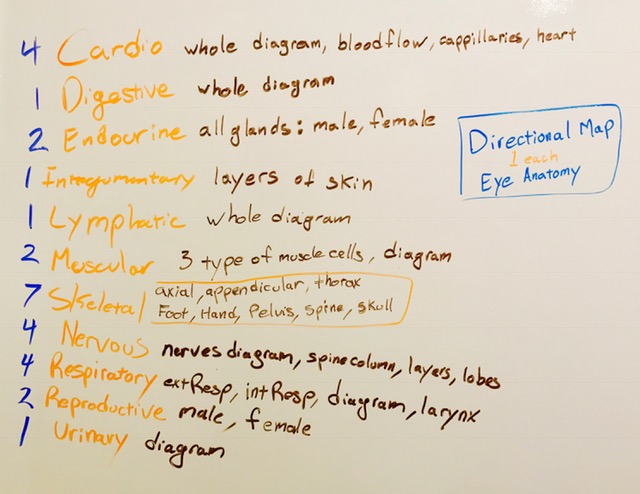 4 Cardio whole diagram, bloodflow, cappillaries, heart
1 Digestive whole diagram
2 Endocrine all glands: male, female
Directional Map
1 each
Eye Anatomy
1 Integumentary layers of skin
1 Lymphatic whole diagram
2 Muscular 3 type of muscle cells, diagram
7 Skeletal axial, appendicular, thorax
Foot, Hand, Pelvis, Spine, Skull
4 Nervous nerves diagram, spine column, layers, lobes
4 Respiratory extResp, intResp, diagram, larynx
2 Reproductive male, female
1 Urinary diagram